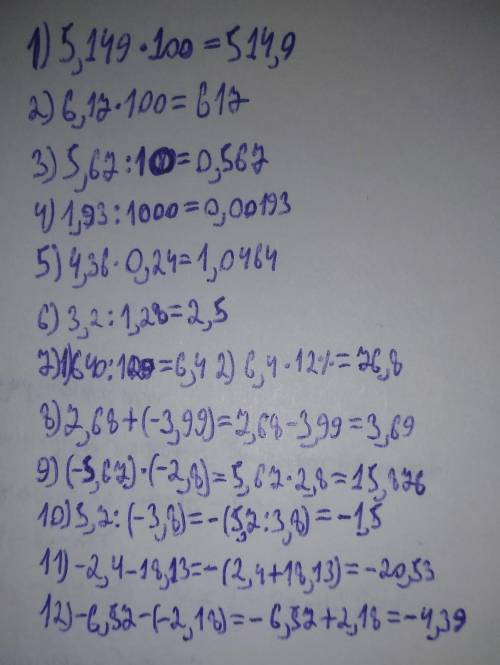 1) 5,149 · 100 = 514,9
2) 6,17 · 100 = 617
3) 5,67 : 10 = 0,567
4) 1,93 : 1000 = 0,00193
5) 4,36 · 0,24 = 1,0464
6) 3,2 : 1,28 = 2,5
7) 1) 640 : 100 = 6,4 2) 6,4 · 12% = 76,8
8) 7,68 + (-3,99) = 7,68 - 3,99 = 3,69
9) (-5,67) · (-2,8) = 5,67 · 2,8 = 15,876
10) 5,7 : (-3,8) = -(5,7 : 3,8) = -1,5
11) -2,4 - 18,13 = -(2,4 + 18,13) = -20,53
12) -6,57 - (-2,18) = -6,57 + 2,18 = -4,39